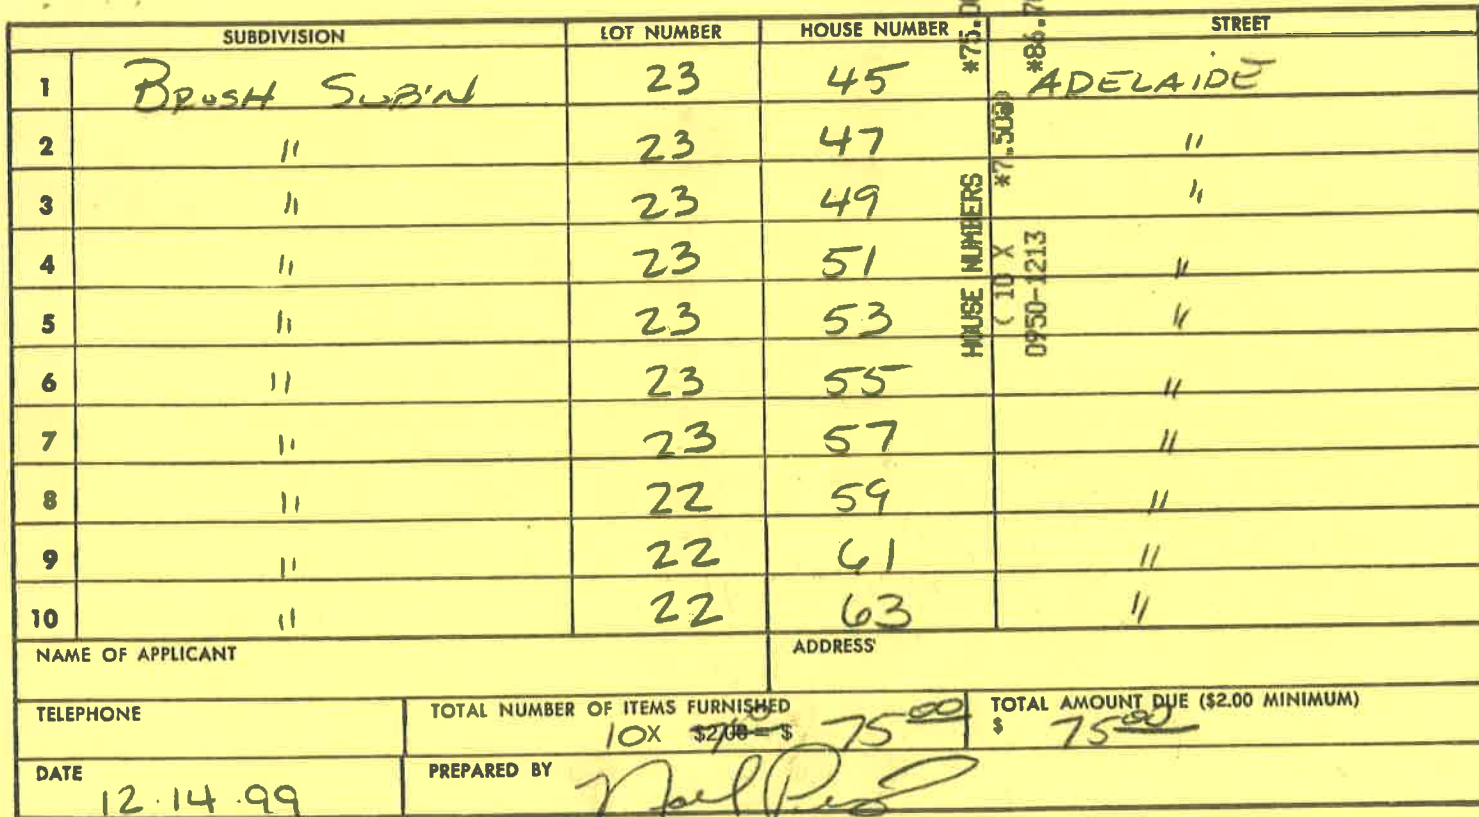 SUBDIVISION LOT NUMBER HOUSE NUMBER STREET
1 BRUSH SUB'N 23 45 ADELAIDE
2 " 23 47 "
3 " 23 49 "
4 " 23 51 "
5 " 23 53 "
6 " 23 55 "
7 " 23 57 "
8 " 22 59 "
9 " 22 61 "
10 " 22 63 "
HOUSE NUMBERS
( 10 X *7.50@)
0950-1213
NAME OF APPLICANT ADDRESS
TELEPHONE TOTAL NUMBER OF ITEMS FURNISHED TOTAL AMOUNT DUE ($2.00 MINIMUM)
10X $2.00 = $ 75.00 $ 75.00
DATE PREPARED BY
12.14.99